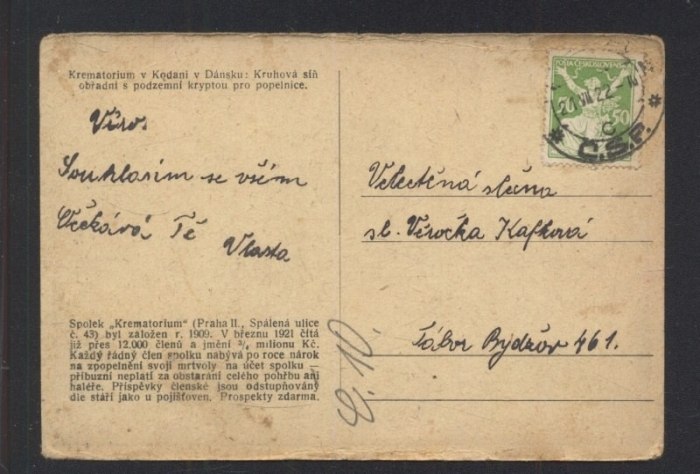 Krematorium v Kodani v Dánsku: Kruhová síň
obřadní s podzemní kryptou pro popelnice.
Věros
Souhlasím se vším
Očekává Tě
Vlasta
Spolek „Krematorium“ (Praha II., Spálená ulice
č. 43) byl založen r. 1909. V březnu 1921 čítá
již přes 12.000 členů a jmění ¾ milionu Kč.
Každý řádný člen spolku nabývá po roce nárok
na zpopelnění svojí mrtvoly na účet spolku —
příbuzní neplatí za obstarání celého pohřbu ani
haléře. Příspěvky členské jsou odstupňovány
dle stáří jako u pojišťoven. Prospekty zdarma.
POŠTA ČESKOSLOVENSKÁ
50
22
C
* Č.S.P. *
Velectěná slečna
sl. Věročka Kafková
Tábor Bydžov 461.